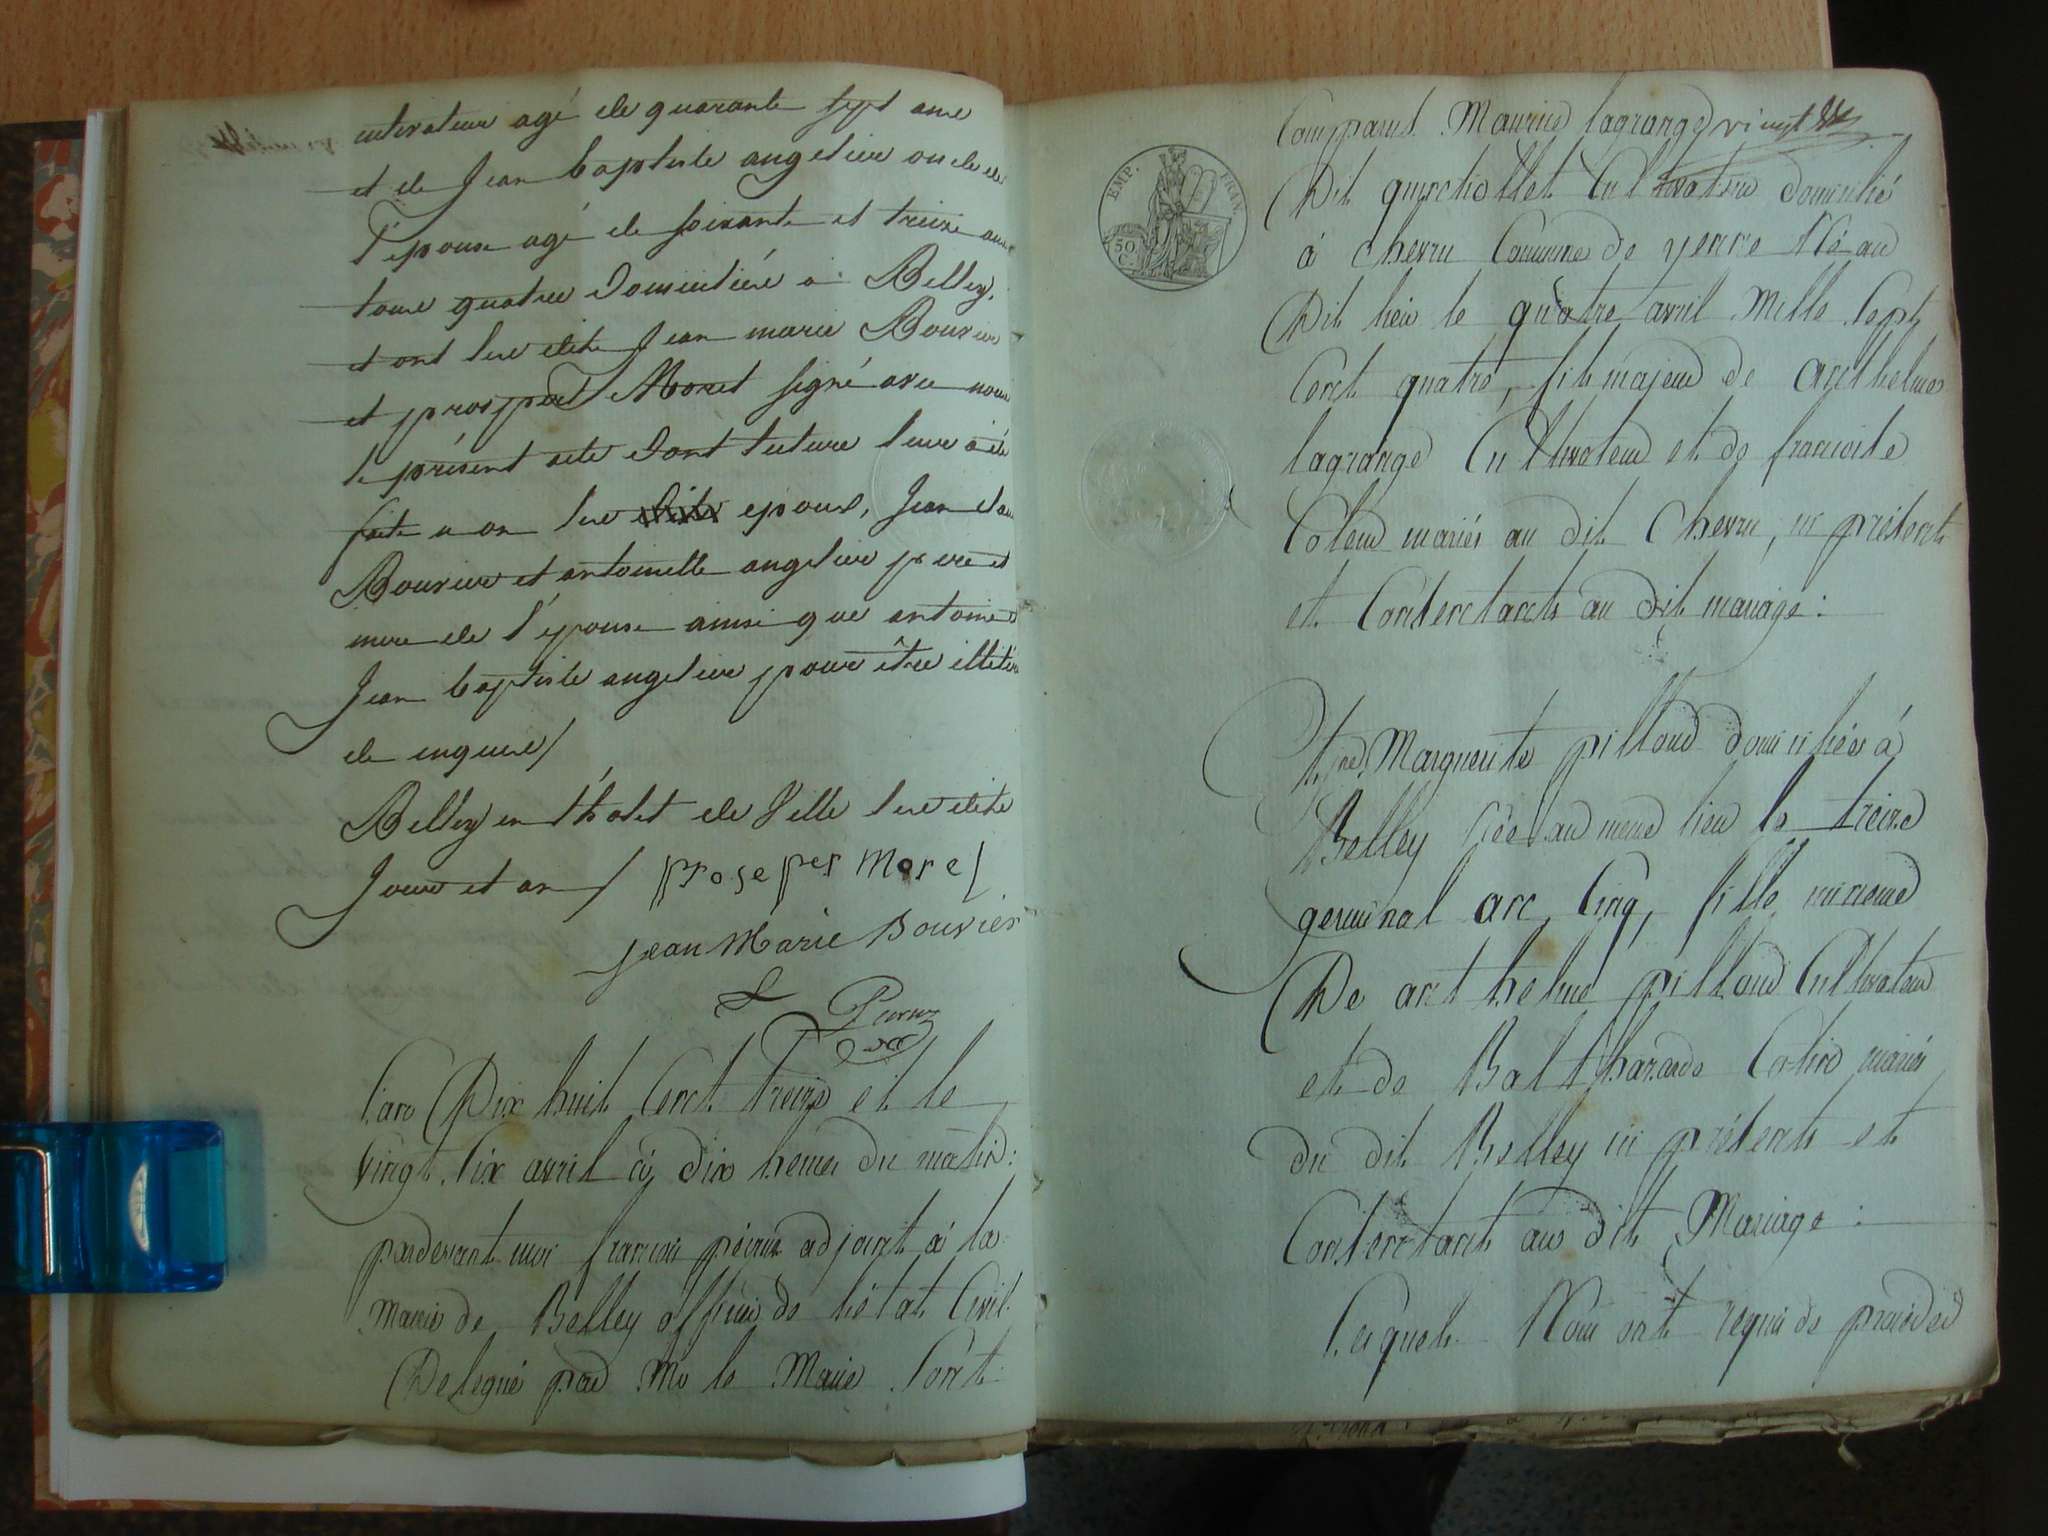 cultivateur agé de quarante sept ans
et de Jean baptiste angelier oncle de
l'épouse agé de soixante et treize ans
tous quatre domiciliés à Belley,
et ont les dits Jean marie Bouvier
et prosper Morel signé avec nous
le présent acte dont lecture leur a été
faite non les epoux, Jean
Bouvier et antoinette angelier pere et
mere de l'épouse ainsi que antoine et
Jean baptiste angelier pour être illitérés
de enquis/
Belley en l'hotel de Ville les dits
Jour et an / proseper Morel
jean Marie Bouvier
L'an Dix huit Cent treize et le
vingt Six avril à dix heures du matin:
pardevant moi françois péruz adjoint à la
Mairie de Belley officier de l'état Civil
Delegué par Mr le Maire Sont
Comparus Maurice lagrange vingt
EMP. FRAN.
50 C.
Dit quinctiollet Cultivateur domicilié
à chevru Commune de yenne Né au
Dit lieu le quatre avril Mille Sept
Cent quatre, fils majeur de anthelme
lagrange Cultivateur et de francoise
Coleur mariés au dit Chevru, ici présents
et Consentants au dit mariage:
Et Marguerite pilloud domiciliée à
Belley Née au meme lieu le treize
germinal an Cinq, fille mineure
De anthelme pilloud Cultivateur
et de Balthazarde Cotin mariés
du dit Belley ici présents et
Consentants au dit Mariage:
Lesquels Nous ont requis de procéder